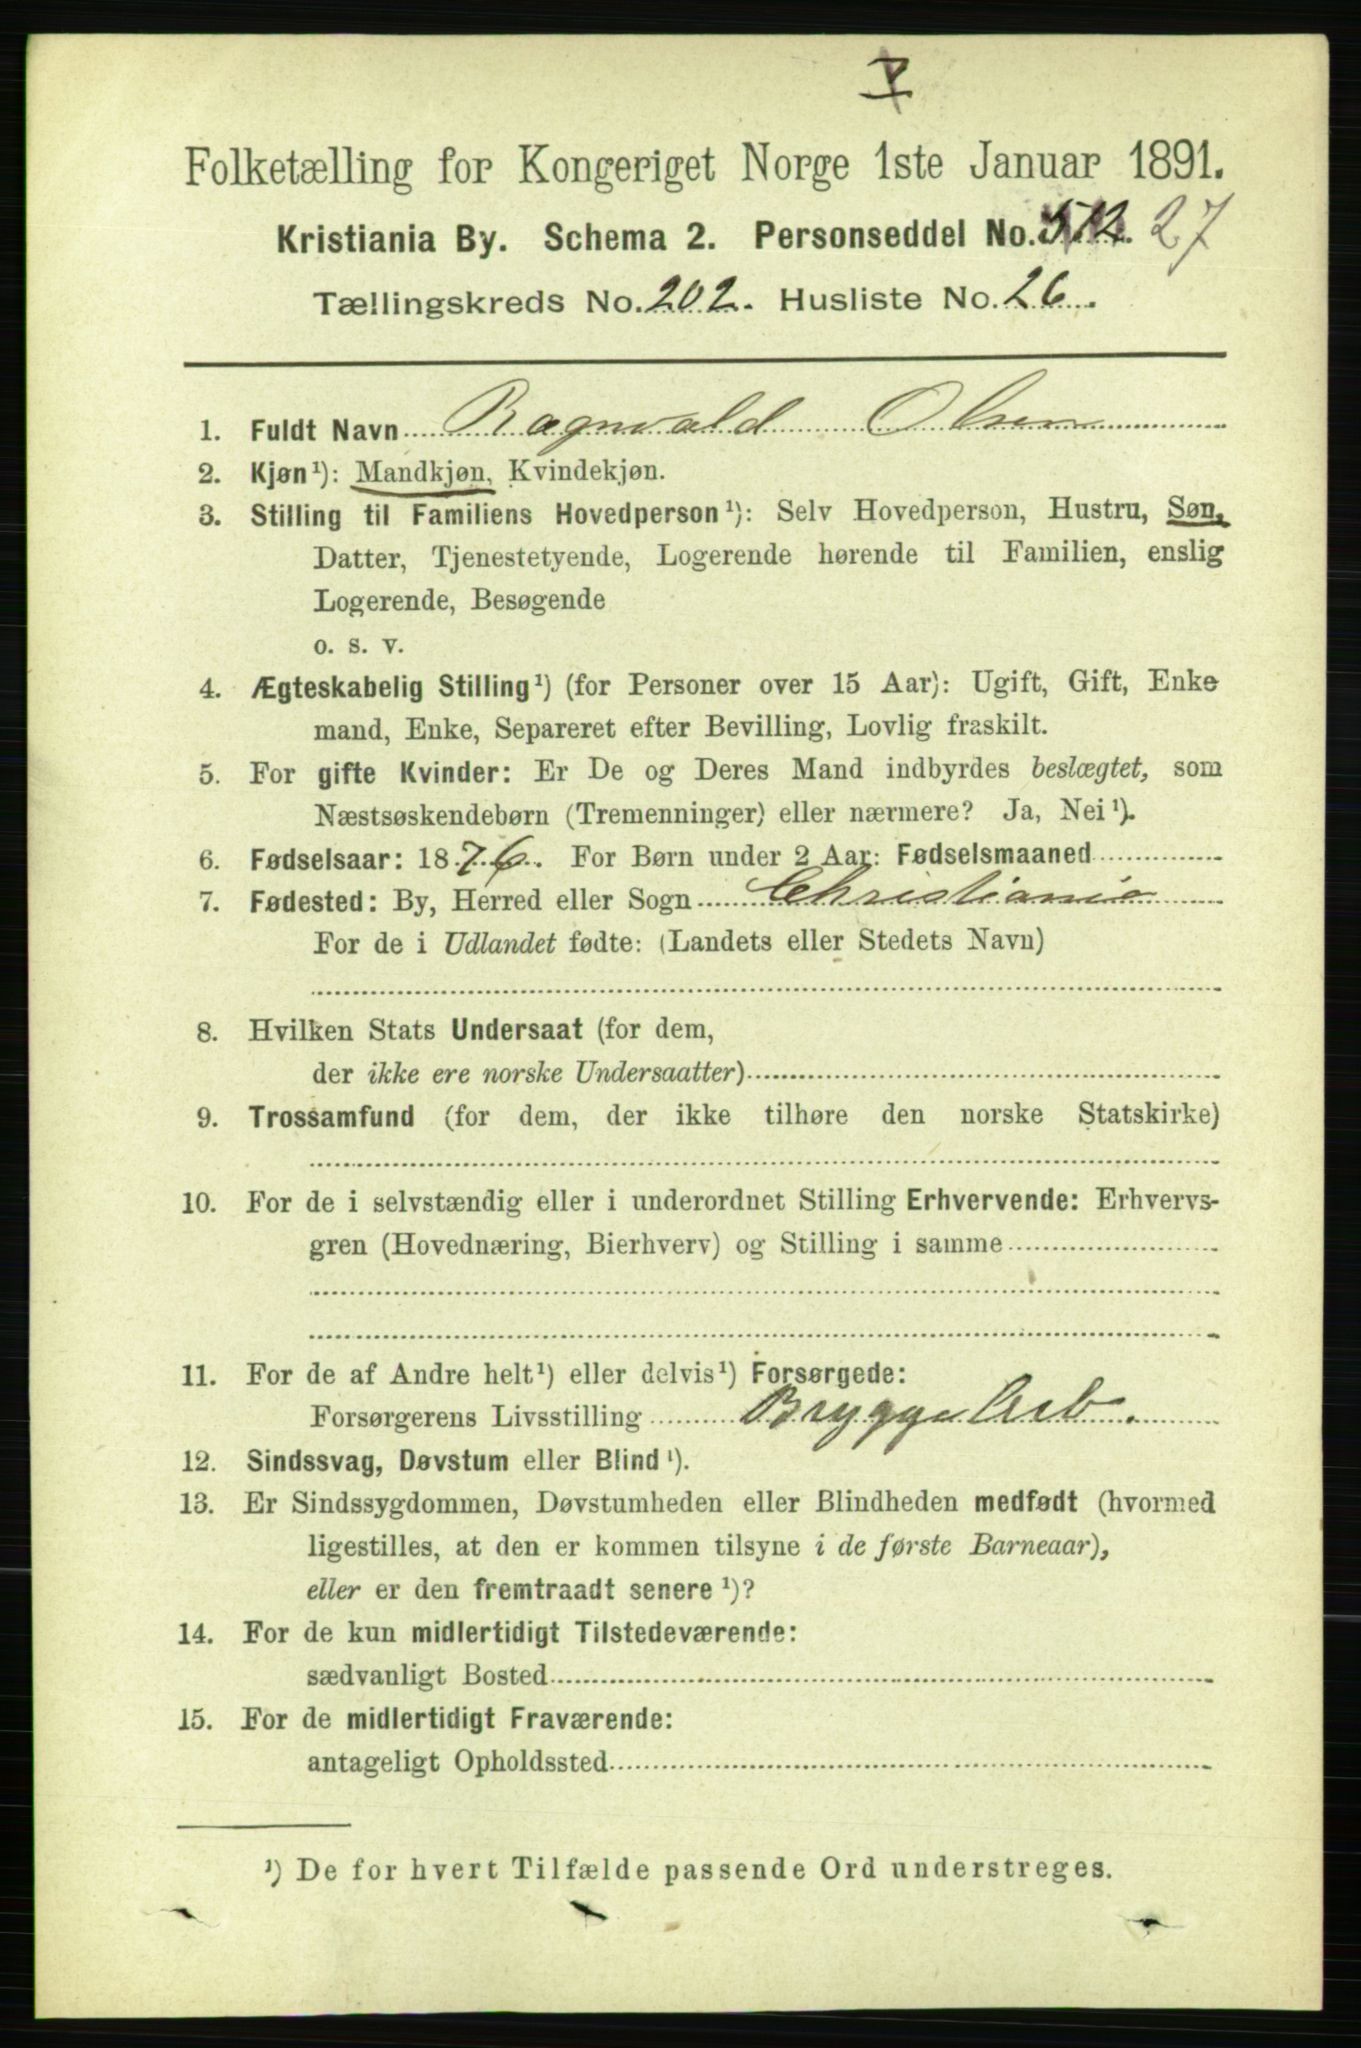 V
Folketælling for Kongeriget Norge 1ste Januar 1891.
Kristiania By. Schema 2. Personseddel No. 27
Tællingskreds No. 202. Husliste No. 26.
1. Fuldt Navn Ragnvald Olsen
2. Kjøn¹): Mandkjøn, Kvindekjøn.
3. Stilling til Familiens Hovedperson¹): Selv Hovedperson, Hustru, Søn,
Datter, Tjenestetyende, Logerende hørende til Familien, enslig
Logerende, Besøgende
o. s. v.
4. Ægteskabelig Stilling¹) (for Personer over 15 Aar): Ugift, Gift, Enke
mand, Enke, Separeret efter Bevilling, Lovlig fraskilt.
5. For gifte Kvinder: Er De og Deres Mand indbyrdes beslægtet, som
Næstsøskendebørn (Tremenninger) eller nærmere? Ja, Nei¹).
6. Fødselsaar: 1876. For Børn under 2 Aar: Fødselsmaaned
7. Fødested: By, Herred eller Sogn Christiania
For de i Udlandet fødte: (Landets eller Stedets Navn)
8. Hvilken Stats Undersaat (for dem,
der ikke ere norske Undersaatter)
9. Trossamfund (for dem, der ikke tilhøre den norske Statskirke)
10. For de i selvstændig eller i underordnet Stilling Erhvervende: Erhvervs-
gren (Hovednæring, Bierhverv) og Stilling i samme
11. For de af Andre helt¹) eller delvis¹) Forsørgede:
Forsørgerens Livsstilling Brygge Arb.
12. Sindssvag, Døvstum eller Blind¹).
13. Er Sindssygdommen, Døvstumheden eller Blindheden medfødt (hvormed
ligestilles, at den er kommen tilsyne i de første Barneaar),
eller er den fremtraadt senere¹)?
14. For de kun midlertidigt Tilstedeværende:
sædvanligt Bosted
15. For de midlertidigt Fraværende:
antageligt Opholdssted
¹) De for hvert Tilfælde passende Ord understreges.